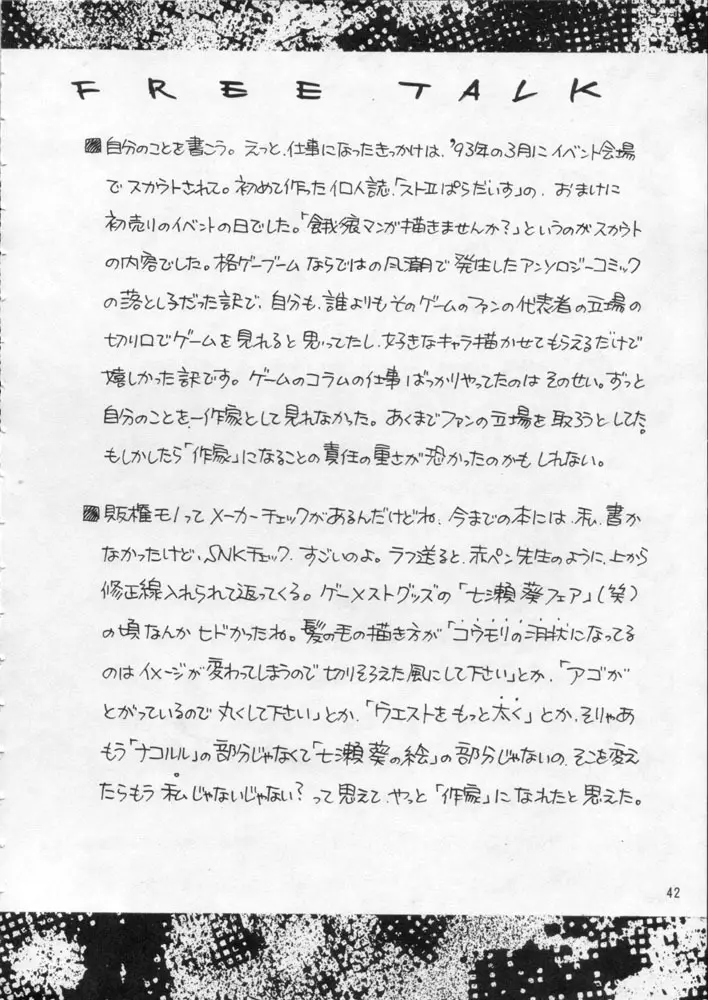 FREE TALK
▨自分のことを書こう。えっと、仕事になったきっかけは、'93年の3月にイベント会場
でスカウトされて。初めて作った個人誌、「ストIIぱらだいす」の、おまけに
初売りのイベントの日でした。「餓狼マンガ描きませんか?」というのがスカウト
の内容でした。格ゲーブームならではの風潮で発生したアンソロジーコミック
の落とし子だった訳で、自分も、誰よりもそのゲームのファンの代表者の立場の
切り口でゲームを見れると思ってたし、好きなキャラ描かせてもらえるだけで
嬉しかった訳です。ゲームのコラムの仕事ばっかりやってたのはそのせい。ずっと
自分のことを、一作家として見れなかった。あくまでファンの立場を取ろうとしてた。
もしかしたら「作家」になることの責任の重さが恐かったのかもしれない。
▨版権モノってメーカーチェックがあるんだけどね、今までの本には、私、書か
なかったけど、SNKチェック、すごいのよ。ラフ送ると、赤ペン先生のように、上から
修正線入れられて返ってくる。ゲーメストグッズの「七瀬葵フェア」(笑)
の頃なんかヒドかったね。髪の毛の描き方が「コウモリの羽状になってる
のはイメージが変わってしまうので切りそろえた風にして下さい」とか、「アゴが
とがっているので丸くして下さい」とか、「ウエストをもっと太く」とか、そりゃあ
もう「ナコルル」の部分じゃなくて「七瀬葵の絵」の部分じゃないの、そこを変え
たらもう私じゃないじゃない?って思えて、やっと「作家」になれたと思えた。
42